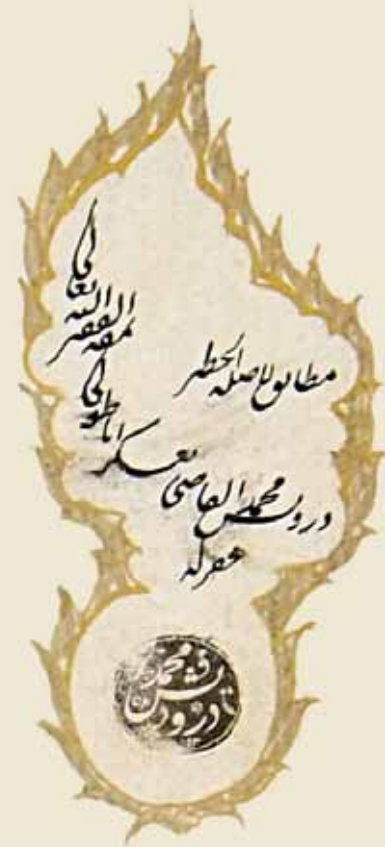 مطابق لاصله الخطير
نمقه الفقير
الله تعالى
درويش محمد القاضي
بعسكر اناطولى
غفر له
درويش محمد